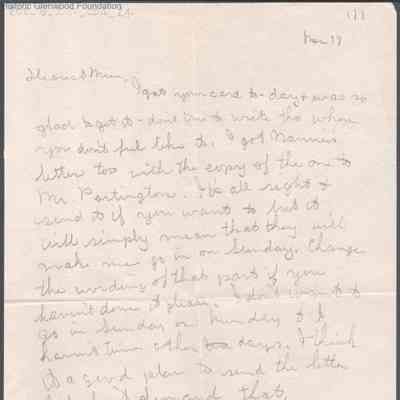 Historic Glenwood Foundation
(1)
Nov 19
Dearest Mum,
I got your card to-day & was so
glad to get it - don't try to write tho when
you don't feel like it. I got Nannie's
letter too with the copy of the one to
Mr. Partington. It's all right &
send it if you want to but it
will simply mean that they will
make me go in on Sunday. Change
the wording of that part if you
haven't done it please. I don't want to
go in Sunday or Monday & I
haven't time other days. I think
it's a good plan to send the letter
demand that